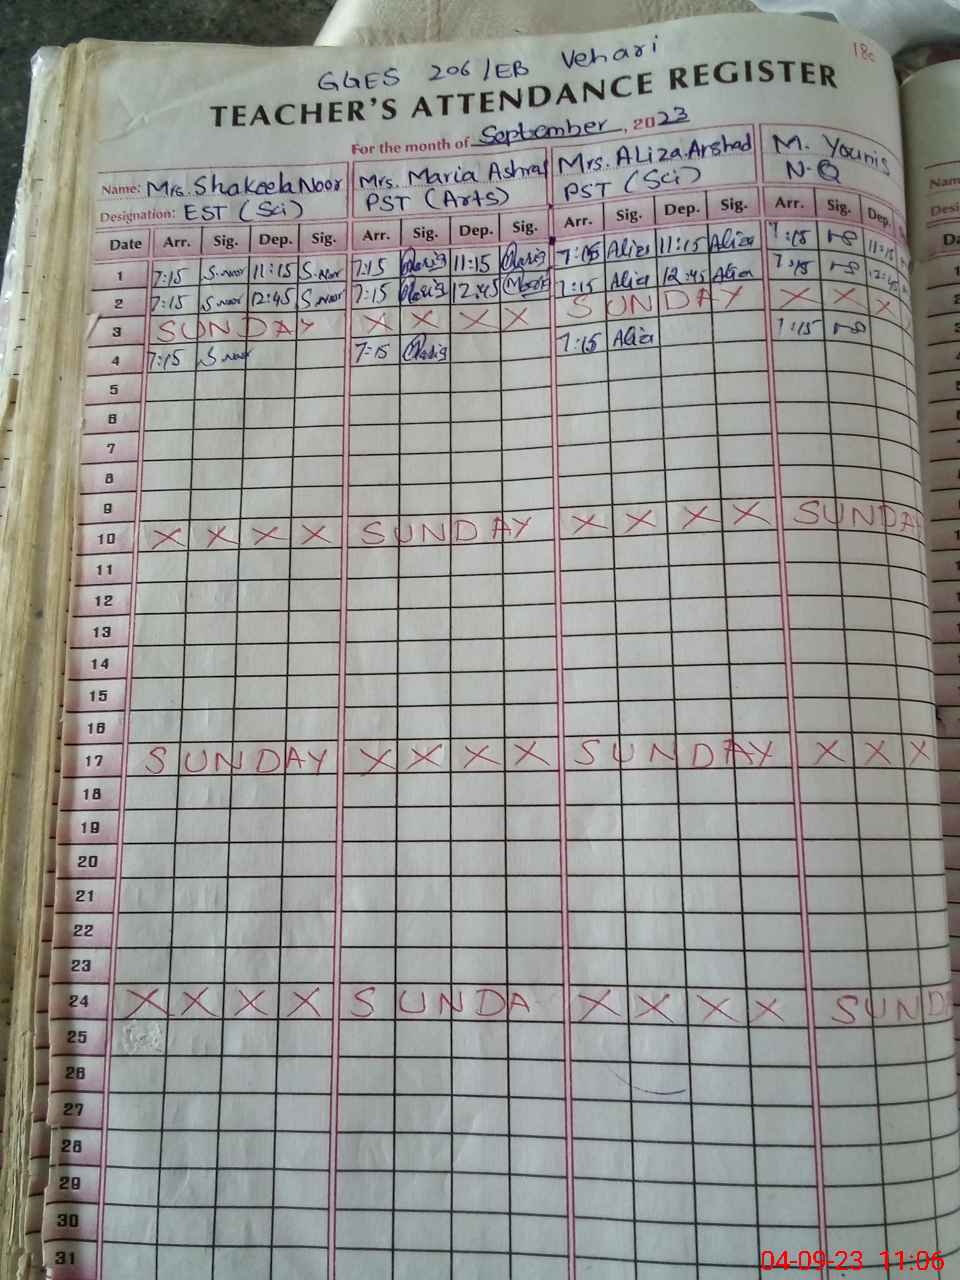 GGES 206/EB Vehari
TEACHER'S ATTENDANCE REGISTER
For the month of September, 2023
Name: Mrs. Shakeela Noor Mrs. Maria Ashraf Mrs. Aliza Arshad M. Younis
Designation: EST (Sci) PST (Arts) PST (Sci) N.Q
Date Arr. Sig. Dep. Sig. Arr. Sig. Dep. Sig. Arr. Sig. Dep. Sig. Arr. Sig. Dep.
1 7:15 S.noor 11:15 S.noor 7:15 11:15 7:15 Aliza 11:15 Aliza 7:15 11:15
2 7:15 S.noor 12:45 S.noor 7:15 12:45 7:15 Aliza 12:45 Aliza 7:15 12:45
3 SUNDAY X X X X SUNDAY X X X
4 7:15 S.noor 7:15 7:15 Aliza 7:15
5
6
7
8
9
10 X X X X SUNDAY X X X X SUNDA
11
12
13
14
15
16
17 SUNDAY X X X X SUNDAY X X X
18
19
20
21
22
23
24 X X X X SUNDA X X X X SUND
25
26
27
28
29
30
31
04-09-23 11:06